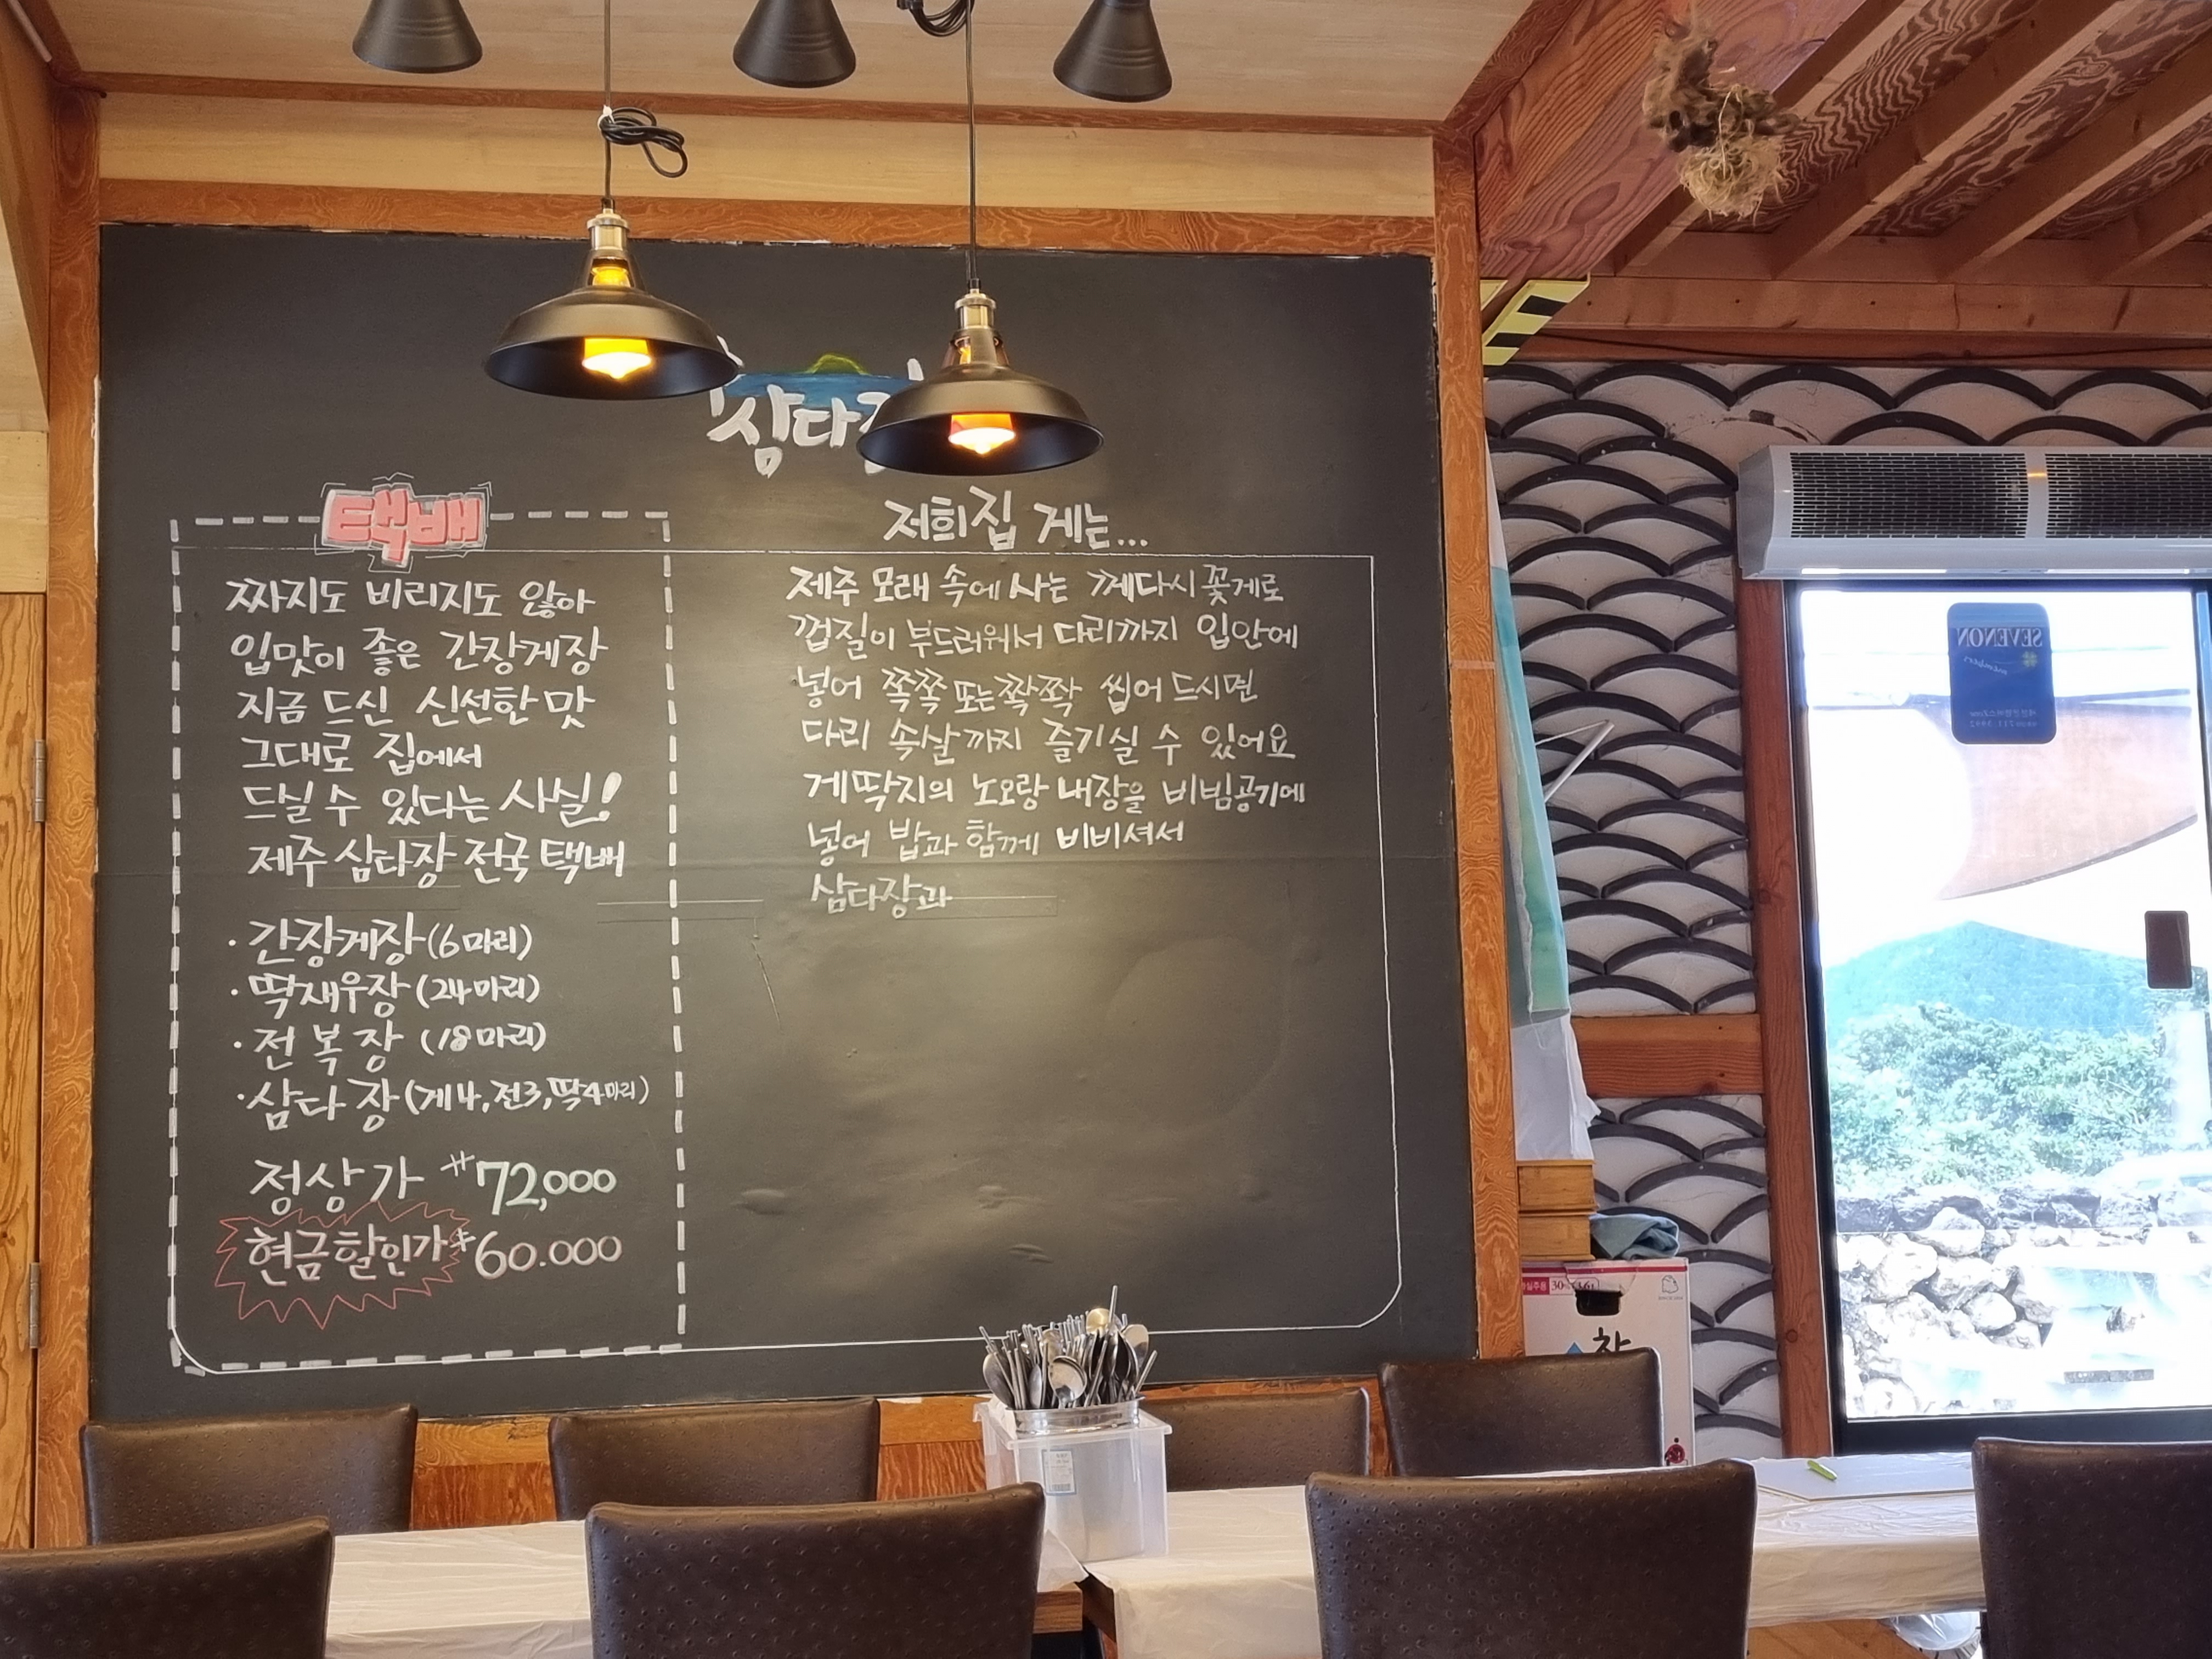 삼다
택배
짜지도 비리지도 않아
입맛이 좋은 간장게장
지금 드신 신선한 맛
그대로 집에서
드실 수 있다는 사실!
제주 삼다장 전국 택배
· 간장게장 (6마리)
· 딱새우장 (24마리)
· 전복장 (18마리)
· 삼다장 (게4, 전3, 딱4마리)
정상가 ₩72,000
현금할인가 ₩60.000
저희집 게는...
제주 모래 속에 사는 께다시 꽃게로
껍질이 부드러워서 다리까지 입안에
넣어 쪽쪽 또는 쫙쫙 씹어 드시면
다리 속살까지 즐기실 수 있어요
게딱지의 노오랑 내장을 비빔공기에
넣어 밥과 함께 비비셔서
삼다장과
SEVENON